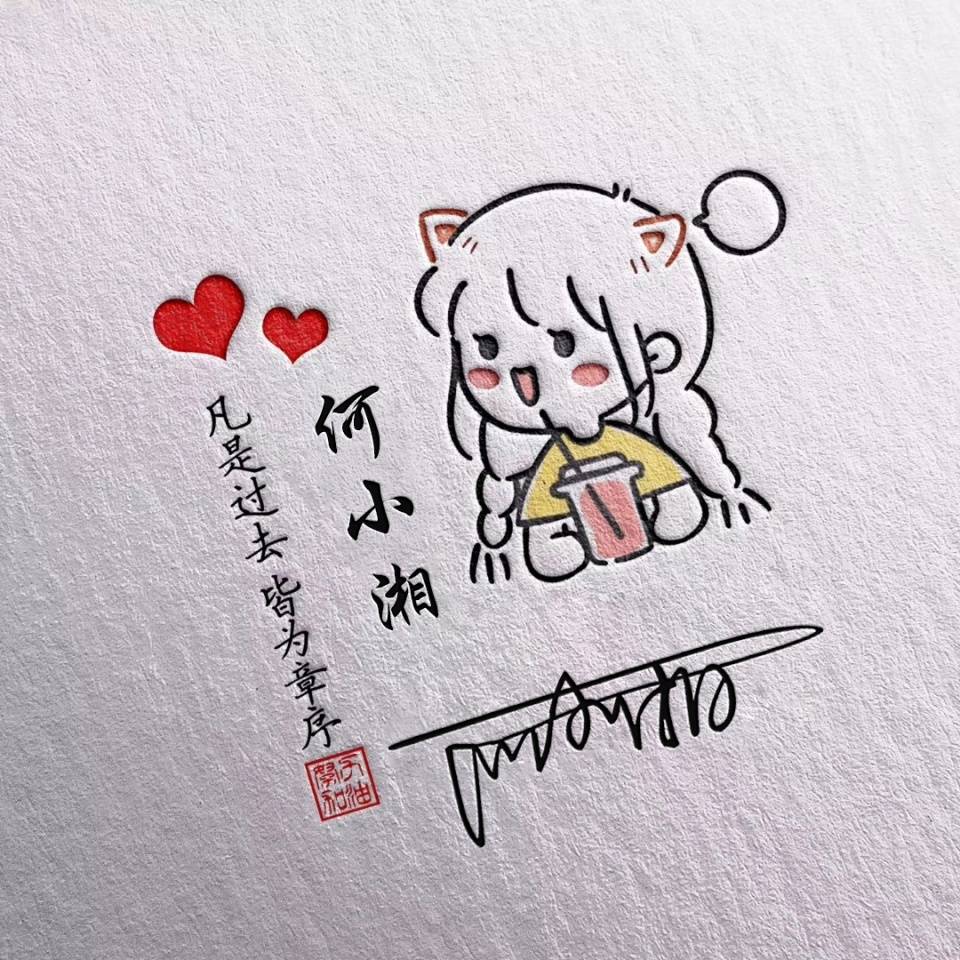 何小湘
凡是过去皆为章序